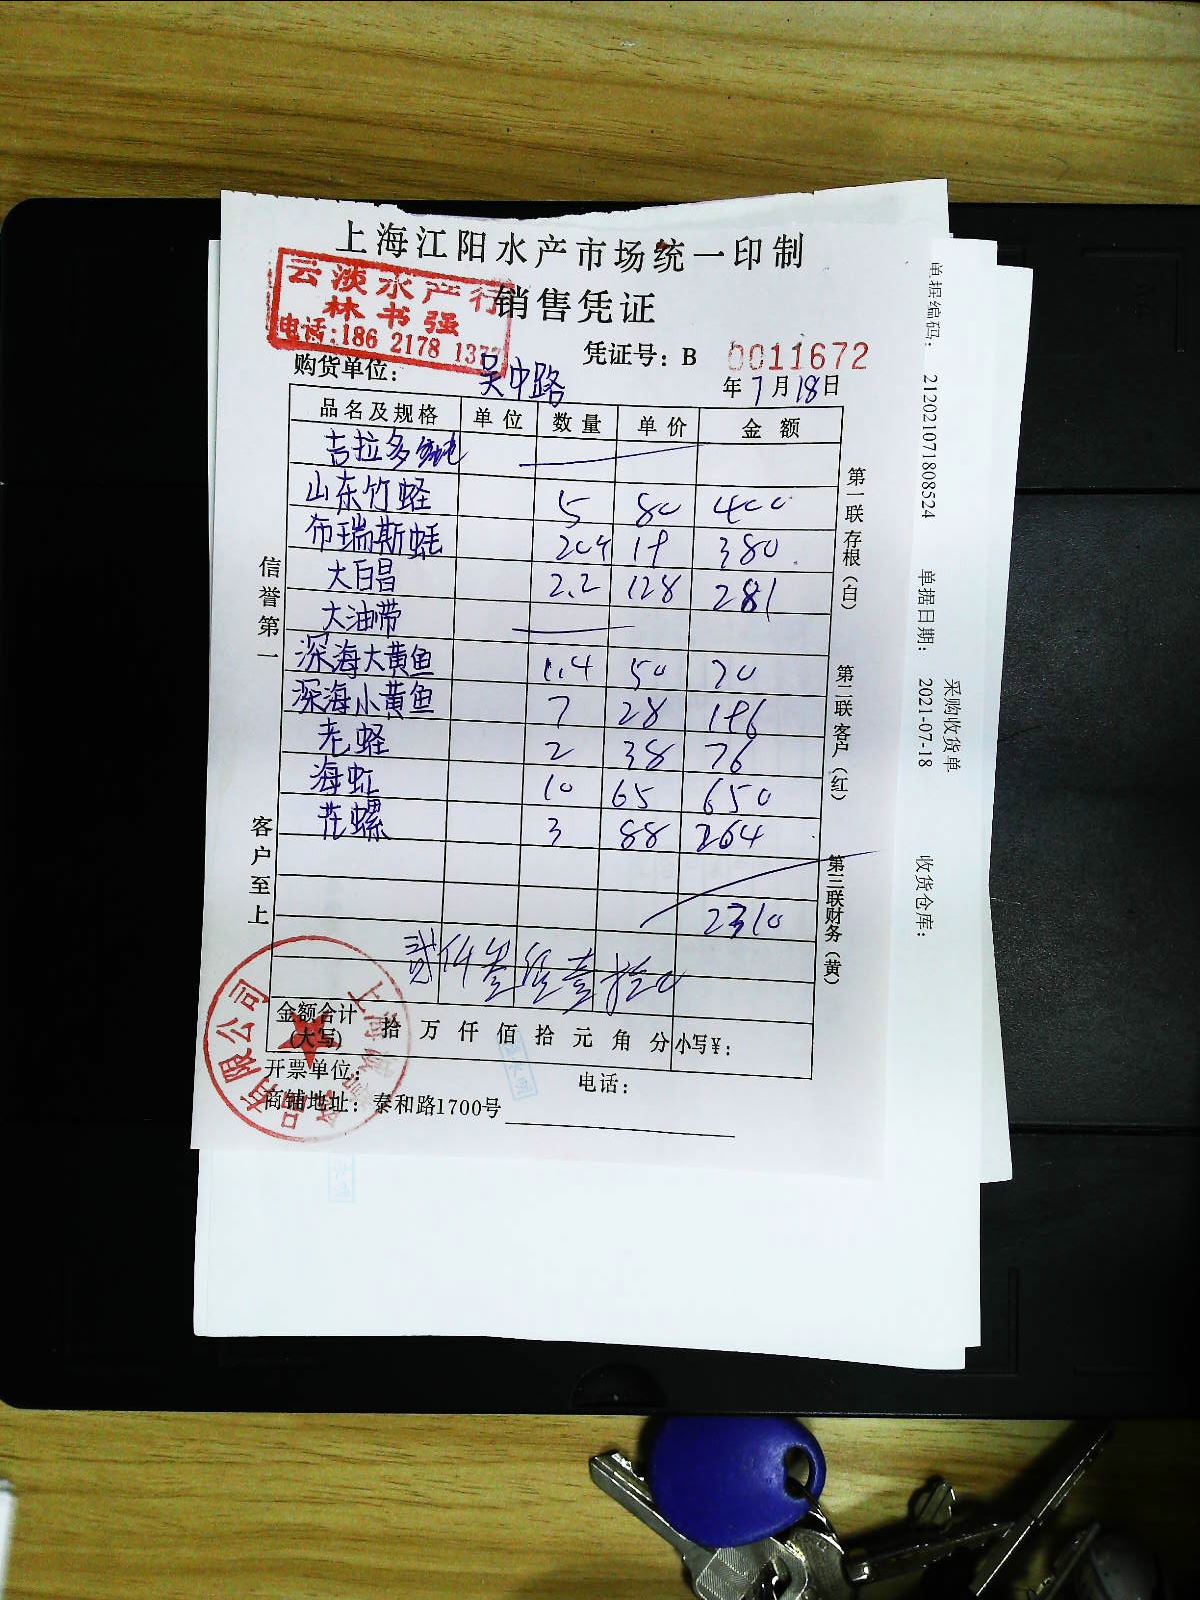 上海江阳水产市场统一印制
销售凭证
云淡水产行
林书强
电话:186 2178 137
凭证号: B 0011672
购货单位: 吴中路
年7月18日
品名及规格 单位 数量 单价 金额
吉拉多
山东竹蛏 5 80 400
布瑞斯蚝 20个 19 380
大白昌 2.2 128 281
大油带
深海大黄鱼 1.4 50 70
深海小黄鱼 7 28 196
老蛏 2 38 76
海虹 10 65 650
花螺 3 88 264
2310
贰仟叁佰壹拾
金额合计
(大写) 拾万仟佰拾元角分 小写¥:
开票单位: 电话:
商铺地址: 泰和路1700号
信誉第一
客户至上
第一联存根(白)
第二联客户(红)
第三联财务(黄)
有限公司
上海
采购收货单
单据编码: 212021071808524 单据日期: 2021-07-18 收货仓库: